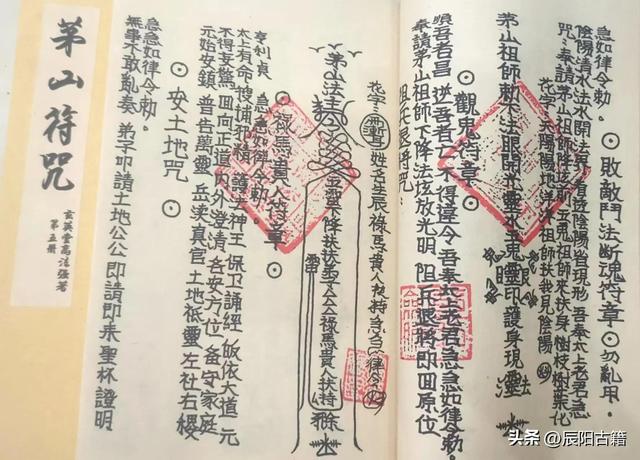 急如律令勅。 ⊙敗敵鬥法斷魂符章⊙勿亂用。
陰陽清水法水開法界看透陰陽省現形 吾奉太上老君急
咒：奉請茅山祖師降壇前五鬼祖師來扶身 樹枝樹葉化
花字：天陽陽地 祖師扶我見陰陽
茅山祖師勅下法眼開光靈水 鬼靈印護身現
⊙觀鬼符章⊙
順吾者昌 逆吾者亡 不得違令 吾奉太上老君急急如律令勅。
奉請茅山祖師下降法壇放光明 阻兵退將即回原位
阻兵退將咒：
花字： 姓名生辰祿馬貴人扶持急急 律令
茅山法 下降扶 祿馬貴人扶持
⊙祿馬貴人符章⊙
亨利貞 急急如律令勅。
太上有命 搜捕邪精 護法神王 保衛誦經 皈依大道 元
不得妄驚 回向正道 內外澄清 各安方位 备守家庭
元始安鎮 普告萬靈 岳瀆真官 土地祇靈 左社右稷
⊙安土地咒⊙
急急如律令勅。
無事不敢亂奏 弟子叩請土地公公即請即來聖杯證明
茅山符咒
玄英堂高法強著
第五冊
头条@辰阳古籍